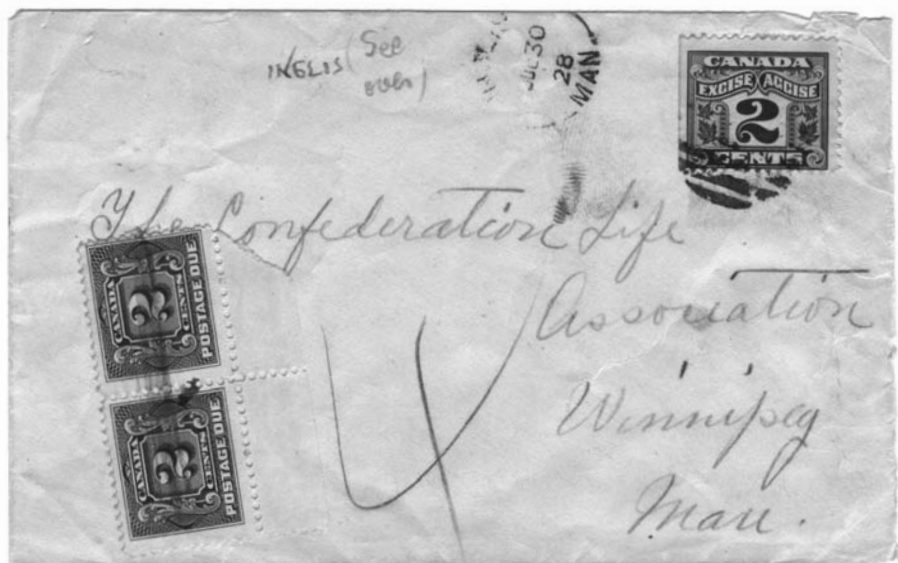 INGLIS (See
over)
JUL 30
28
MAN.
CANADA
EXCISE ACCISE
2
CENTS
The Confederation Life
Association
Winnipeg
Man.
4
CANADA
2
CENTS
POSTAGE DUE
CANADA
2
CENTS
POSTAGE DUE